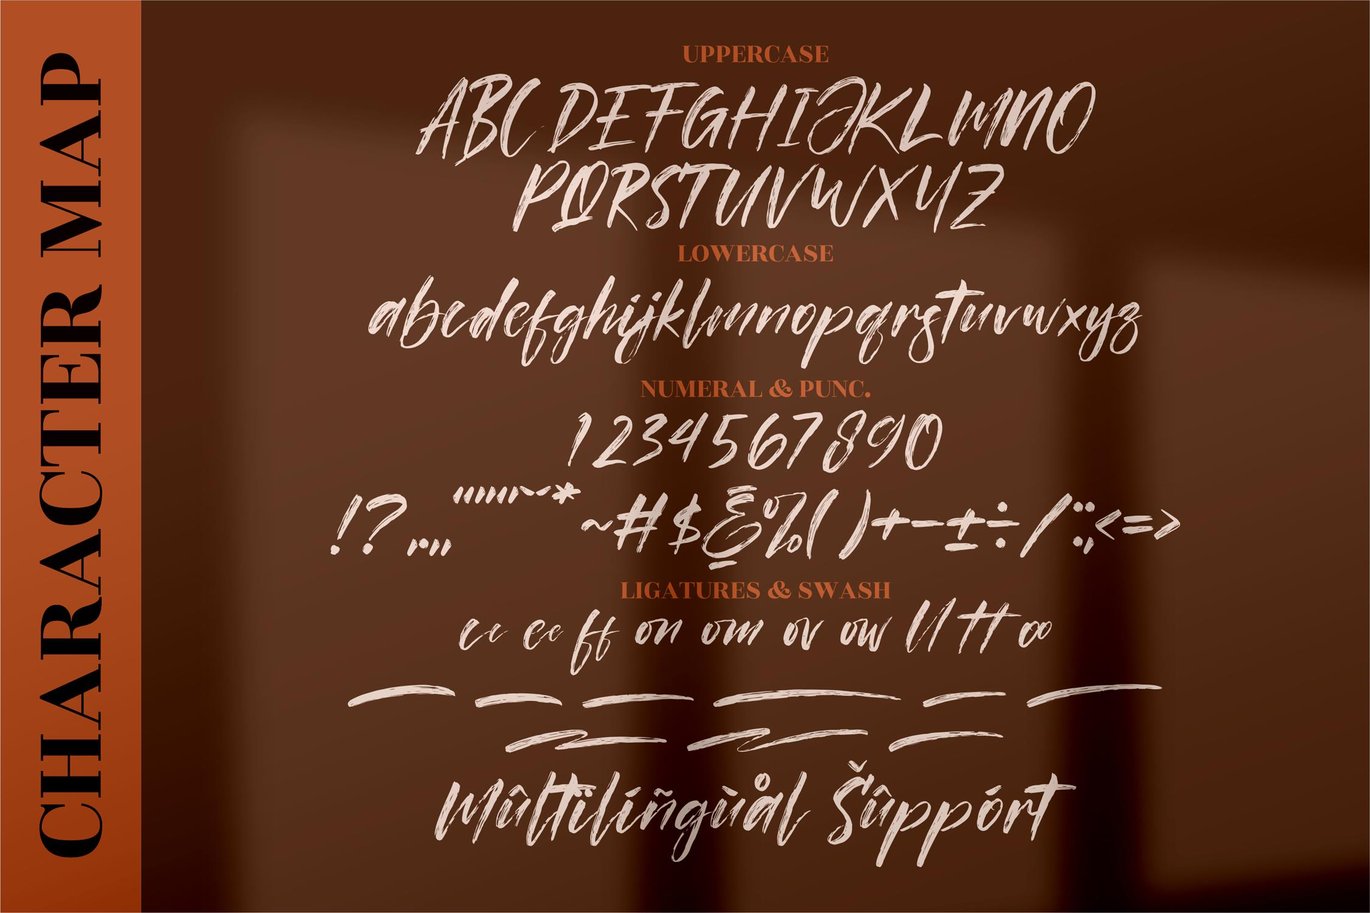 CHARACTER MAP
UPPERCASE
ABCDEFGHIJKLMNO
PQRSTUVWXYZ
LOWERCASE
abcdefghijklmnopqrstuvwxyz
NUMERAL & PUNC.
1234567890
~#$&%()+-±÷/:;<=>
LIGATURES & SWASH
cc ee ff on om ov ow ll tt oo
Mûltïlíñgùål Šûppórt